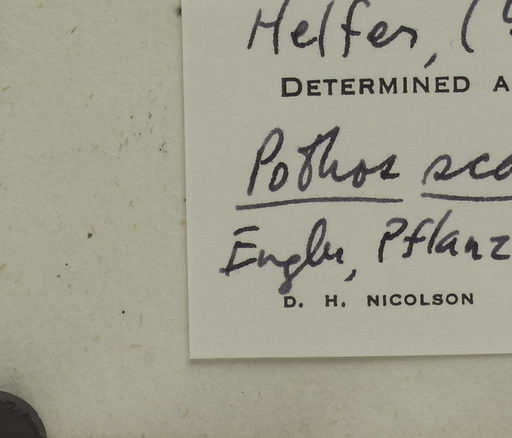 Helfer, (
DETERMINED A
Pothos sca
Engler, Pflanz
D. H. NICOLSON